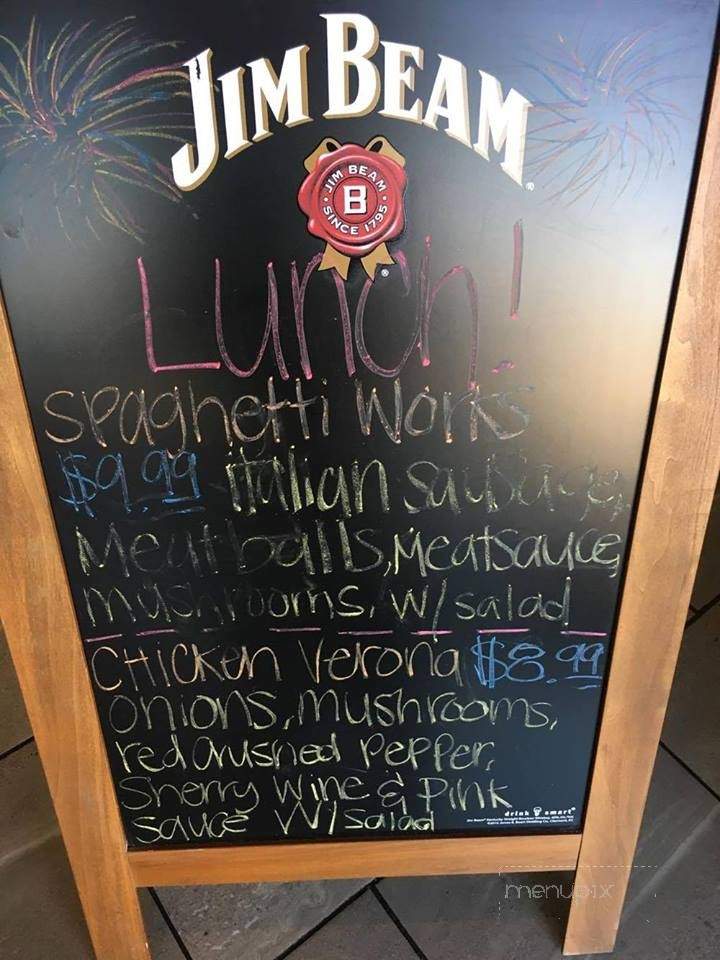 JIM BEAM
JIM BEAM
B
SINCE 1795
Lunch!
Spaghetti Works
$9.99 italian sausage,
Meatballs, Meatsauce,
mushrooms, w/ salad
Chicken Verona $8.99
onions, mushrooms,
red crushed pepper,
Sherry Wine & Pink
sauce W/ salad
drink smart
menupix